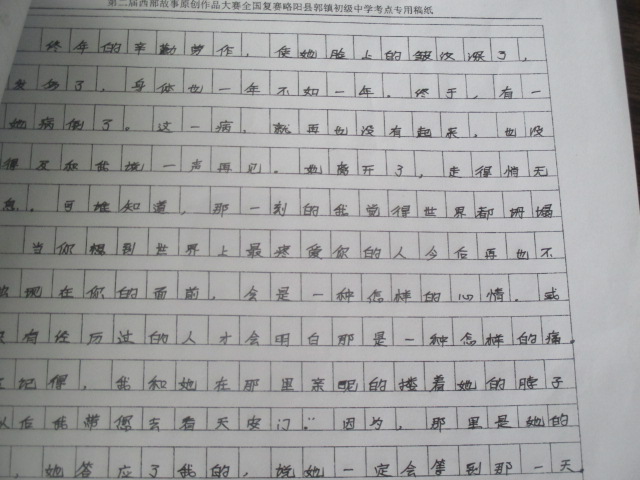 第二届西部故事原创作品大赛全国复赛略阳县郭镇初级中学考点专用稿纸
终年的辛勤劳作，使她脸上的皱纹深了，
了，身体也一年不如一年。终于，有一
她病倒了。这一病，就再也没有起来。也没
得及和我说一声再见。她离开了，走得悄无
息。可谁知道，那一刻的我觉得世界都坍塌
当你想到世界上最疼爱你的人今后再也不
现在你的面前，会是一种怎样的心情。或
只有经历过的人才会明白那是一种怎样的痛。
记得，我和她在那里亲昵的搂着她的脖子
以后我带您去看天安门。”因为，那里是她的
，她答应了我的，说她一定会等到那一天。